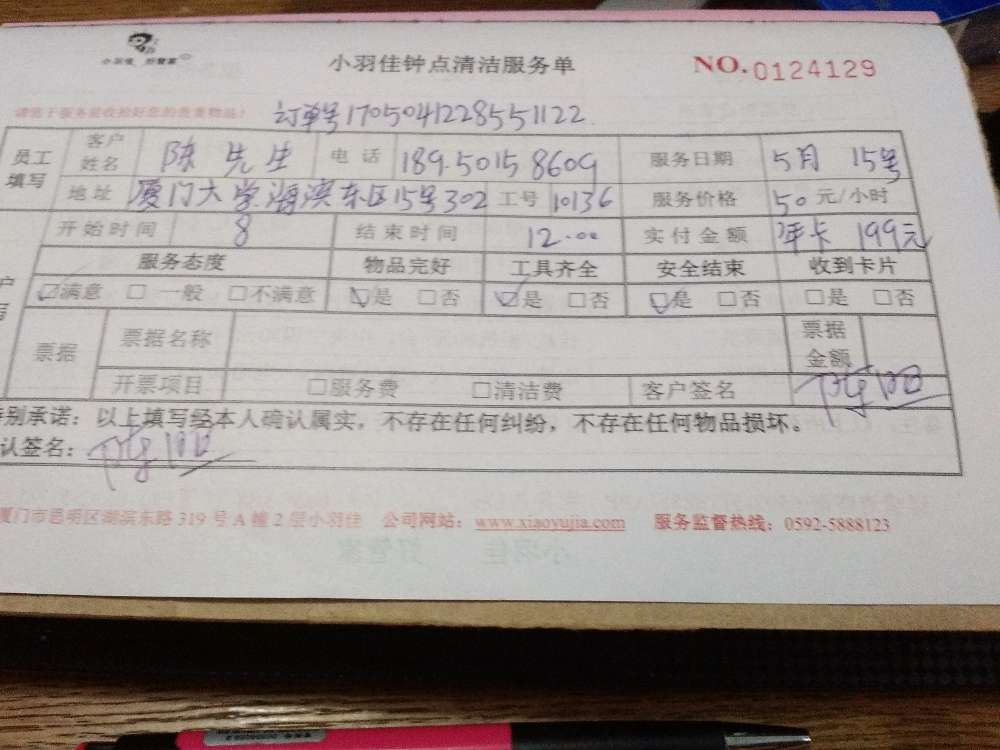 小羽佳 好管家
小羽佳钟点清洁服务单
NO.0124129
请您于服务前收拾好您的贵重物品!
订单号1705041228551122
员工填写
客户姓名 陈先生 电话 189.50158609 服务日期 5月 15号
地址 厦门大学海滨东区15号302 工号 10136 服务价格 50元/小时
开始时间 8 结束时间 12.00 实付金额 年卡 199元
服务态度 物品完好 工具齐全 安全结束 收到卡片
☑满意 □一般 □不满意 ☑是 □否 ☑是 □否 ☑是 □否 □是 □否
票据 票据名称 票据金额
开票项目 □服务费 □清洁费 客户签名
别承诺：以上填写经本人确认属实，不存在任何纠纷，不存在任何物品损坏。
认签名：
厦门市思明区湖滨东路 319 号 A 幢 2 层小羽佳 公司网站：www.xiaoyujia.com 服务监督热线：0592-5888123